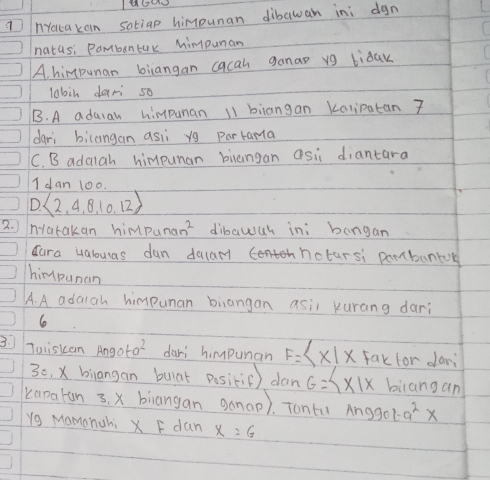 Tugas
1 nyatakan sotiap himpunan dibawah ini dgn
natasi Pambentuk himpunan
A. himpunan bilangan cacah ganap yg tidak
lobih dari 50
B. A adalah himpunan 11 bilangan kalipatan 7
dari bilangan asli yg partama
C. B adalah himpunan bilangan asli diantara
1 dan 100.
D. {2, 4, 8, 10, 12}
2. nyatakan himpunan² dibawah ini dangan
cara uaburas dan dalam notarsi pambantuk
himpunan
A. A adalah himpunan bilangan asli kurang dari
6
3. Tuliskan Anggota² dari himpunan F = {X | X Faktor dari
30, X bilangan bulat Positif} dan G = {X | X bilangan
kapatan 3, X bilangan ganap}. Tantu Anggota² X
yg Mamanuhi X F dan X = G